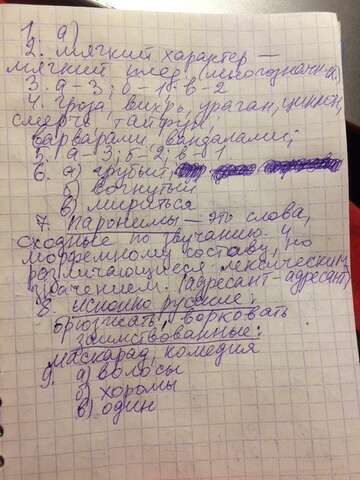 1. а)
2. мягкий характер —
мягкий плед. (многозначн-я)
3. а-3; б-1; в-2
4. гроза, вихрь, ураган, циклон,
смерч, тайфун;
варварами, вандалами;
5. а-3; б-2; в-1
6. а) грубый;
б) вогнутый
в) мириться
7. паронимы — это слова,
сходные по звучанию и
морфемному составу, но
различающиеся лексическим
значением. (адресант-адресант)
8. исконно русские:
брюзжать, ворковать
заимствованные:
маскарад, комедия
9. а) волосы
б) хоромы
в) один